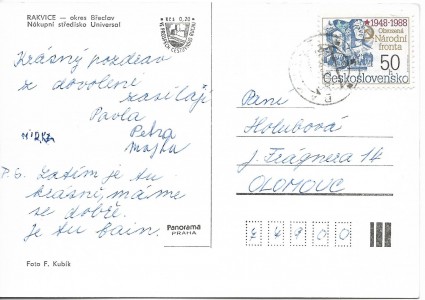 RAKVICE — okres Břeclav
Nákupní středisko Universal
Kčs 0,20
VE PROSPĚCH CESTOVNÍHO RUCHU
Krásný pozdrav
z dovolené
zasílají
Pavla
Petra
P.S. Zatím je tu
krásně, máme
se dobře.
Je tu bain.
Panorama
PRAHA
Foto F. Kubík
1948-1988
Obrozená
Národní
fronta
50 h
Československo
Paní
Holubová
J. Fragnera 14
OLOMOUC